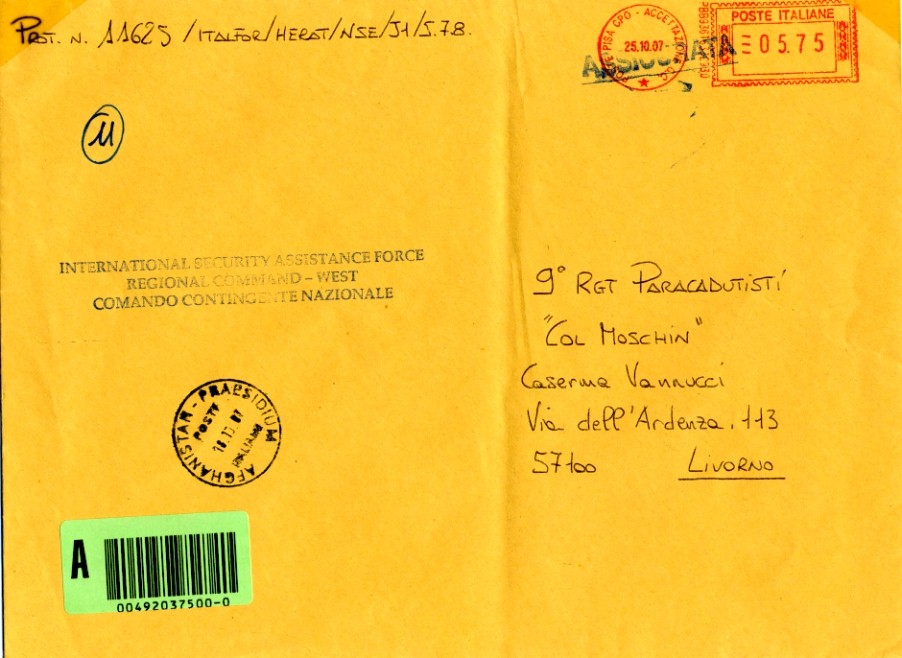 PROT. N. 11625 /ITALFOR/HERAT/NSE/J1/S.7.8.
PISA CPO - ACCETTAZIONE
25.10.07
ASSICURATA
POSTE ITALIANE
05.75
M
INTERNATIONAL SECURITY ASSISTANCE FORCE
REGIONAL COMMAND – WEST
COMANDO CONTINGENTE NAZIONALE
9° RGT PARACADUTISTI
"COL MOSCHIN"
Caserma Vannucci
Via dell'Ardenza, 113
57100 LIVORNO
AFGHANISTAN - PRAESIDIUM
POSTE
ITALIANE
A
00492037500-0